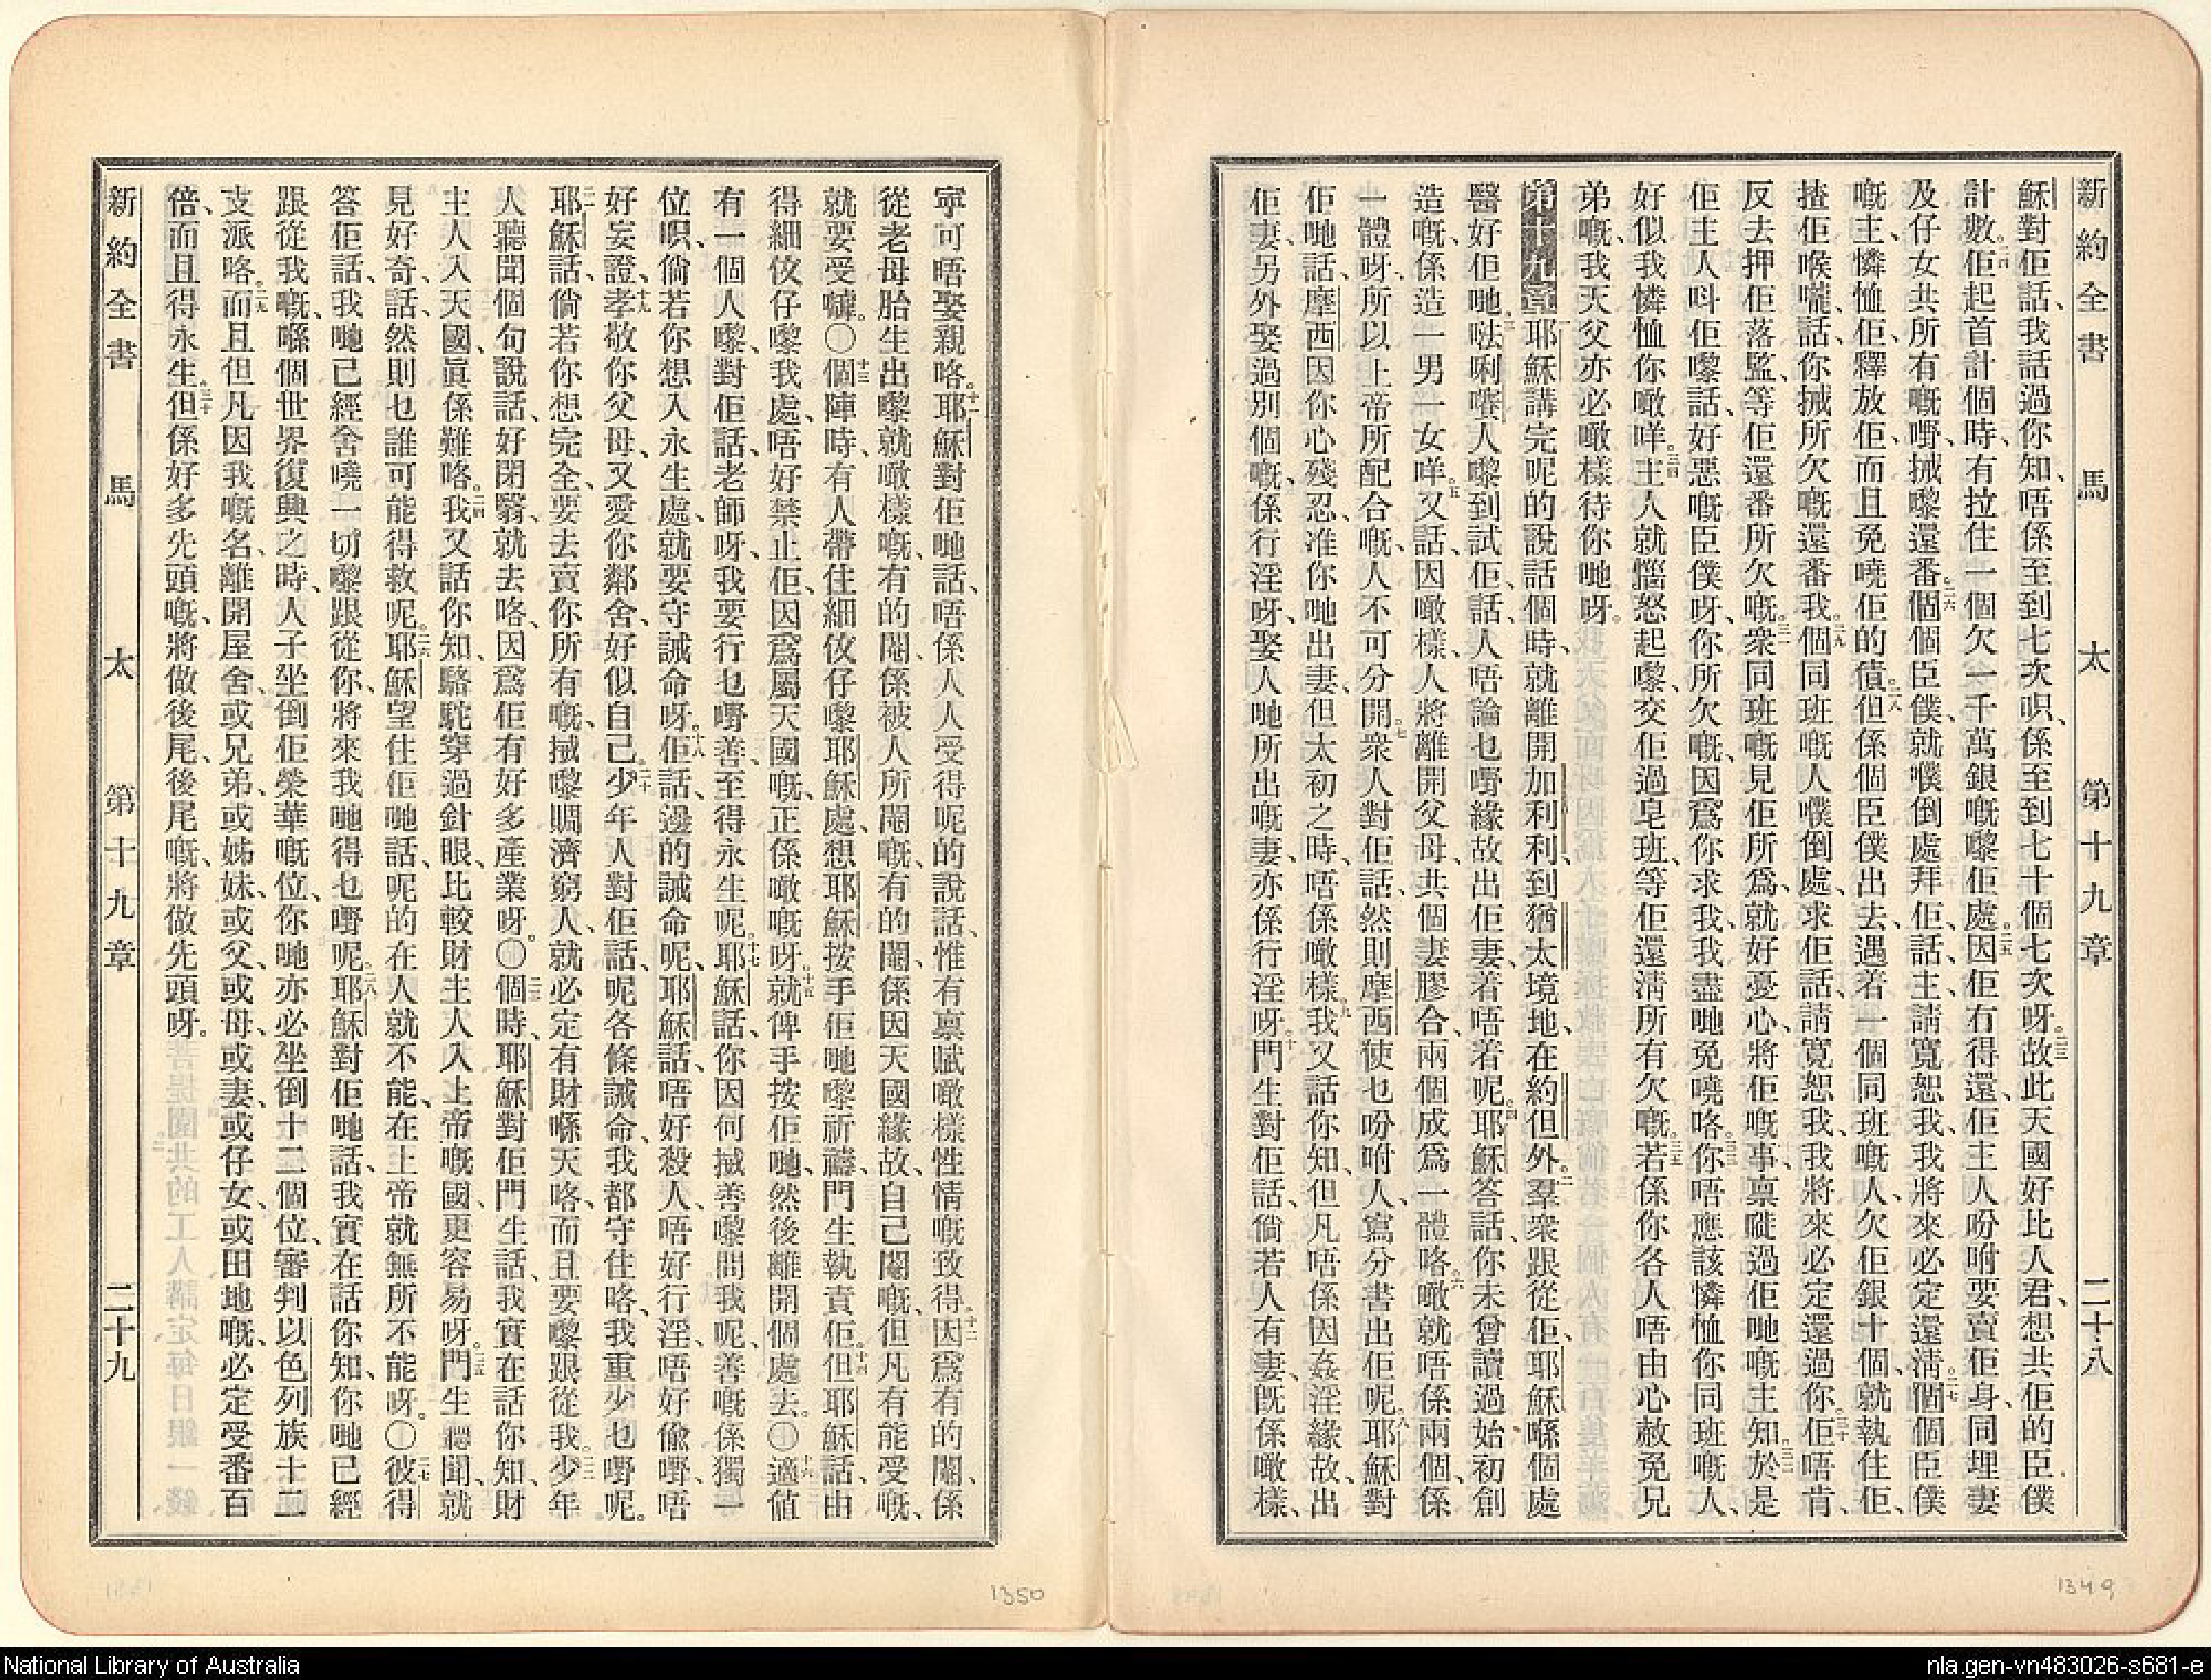 新約全書 馬太 第十九章 二十八
穌對佢話、我話過你知、唔係至到七次呮、係至到七十個七次呀。二三故此天國好比人君、想共佢的臣僕
計數。二四佢起首計個時、有拉住一個欠一千萬銀嘅嚟佢處。二五因佢冇得還、佢主人吩咐要賣佢身、同埋妻
及仔女共所有嘅嘢、搣嚟還番。二六個個臣僕、就喺倒處拜佢、話、主、請寬恕我、我將來必定還淸。二七個個臣僕
嘅主、憐恤佢、釋放佢、而且免曉佢的債。二八但係個臣僕出去、遇着一個同班嘅人、欠佢銀十個、就執住佢、
揸佢喉嚨、話、你搣所欠嘅還番我。二九個同班嘅人、喺倒處、求佢話、請寬恕我、我將來必定還過你。三十佢唔肯、
反去押佢落監、等佢還番所欠嘅。三一衆同班嘅見佢所爲、就好憂心、將佢嘅事、禀嗺過佢哋嘅主知。三二於是
佢主人呌佢嚟話、好惡嘅臣僕呀、你所欠嘅、因爲你求我、我盡哋免曉咯。三三你唔應該憐恤你同班嘅人、
好似我憐恤你噉咩。三四主人就惱怒起嚟、交佢過皂班、等佢還淸所有欠嘅。三五若係你各人唔由心赦免兄
弟嘅、我天父亦必噉樣待你哋呀。
第十九章 一耶穌講完呢的說話個時、就離開加利利、到猶太境地、在約但外。二羣衆跟從佢、耶穌喺個處
醫好佢哋。三𠵽唎㘔人嚟到試佢、話、人唔論乜嘢緣故出佢妻、着唔着呢。四耶穌答話、你未曾讀過始初創
造嘅、係造一男一女咩。五又話、因噉樣、人將離開父母、共個妻膠合、兩個成爲一體咯。六噉就唔係兩個、係
一體呀、所以上帝所配合嘅、人不可分開。七衆人對佢話、然則摩西使乜吩咐人、寫分書出佢呢。八耶穌對
佢哋話、摩西因你心殘忍、准你哋出妻、但太初之時、唔係噉樣。九我又話你知、但凡唔係因姦淫緣故、出
佢妻、另外娶過別個嘅、係行淫呀、娶人哋所出嘅妻、亦係行淫呀。十門生對佢話、倘若人有妻、旣係噉樣、
1349
寧可唔娶親咯。十一耶穌對佢哋話、唔係人人受得呢的說話、惟有禀賦噉樣性情嘅致得。十二因爲有的閹、係
從老母胎生出嚟就噉樣嘅、有的閹、係被人所閹嘅、有的閹、係因天國緣故、自己閹嘅、但凡有能受嘅、
就要受嚹。〇十三個陣時、有人帶住細伩仔嚟耶穌處、想耶穌按手佢哋嚟祈禱、門生執責佢。十四但耶穌話、由
得細伩仔嚟我處、唔好禁止佢、因爲屬天國嘅、正係噉嘅呀。十五就俾手按佢哋、然後離開個處去。〇十六適値
有一個人嚟、對佢話、老師呀、我要行乜嘢善、至得永生呢。十七耶穌話、你因何搣善嚟問我呢、善嘅係獨一
位呮、倘若你想入永生處、就要守誡命呀。十八佢話、邊的誡命呢、耶穌話、唔好殺人、唔好行淫、唔好偸嘢、唔
好妄證、十九孝敬你父母、又愛你鄰舍、好似自己。二十少年人對佢話、呢各條誡命、我都守住咯、我重少乜嘢呢。
二一耶穌話、倘若你想完全、要去賣你所有嘅、搣嚟賙濟窮人、就必定有財喺天咯、而且要嚟跟從我。二二少年
人聽聞個句說話、好閉翳、就去咯、因爲佢有好多產業呀。〇二三個時、耶穌對佢門生話、我實在話你知、財
主人入天國、眞係難咯。二四我又話你知、駱駝穿過針眼、比較財主人入上帝嘅國、更容易呀。二五門生聽聞、就
見好奇、話、然則乜誰可能得救呢。二六耶穌望住佢哋話、呢的在人就不能、在上帝就無所不能呀。〇二七彼得
答佢話、我哋已經舍曉一切嚟跟從你、將來我哋得乜嘢呢。二八耶穌對佢哋話、我實在話你知、你哋已經
跟從我嘅、喺個世界復興之時、人子坐倒佢榮華嘅位、你哋亦必坐倒十二個位、審判以色列族十二
支派咯。二九而且但凡因我嘅名、離開屋舍、或兄弟、或姊妹、或父、或母、或妻、或仔女、或田地嘅、必定受番百
倍、而且得永生。三十但係好多先頭嘅、將做後尾、後尾嘅、將做先頭呀。
新約全書 馬太 第十九章 二十九
1350
National Library of Australia
nla.gen-vn483026-s681-e